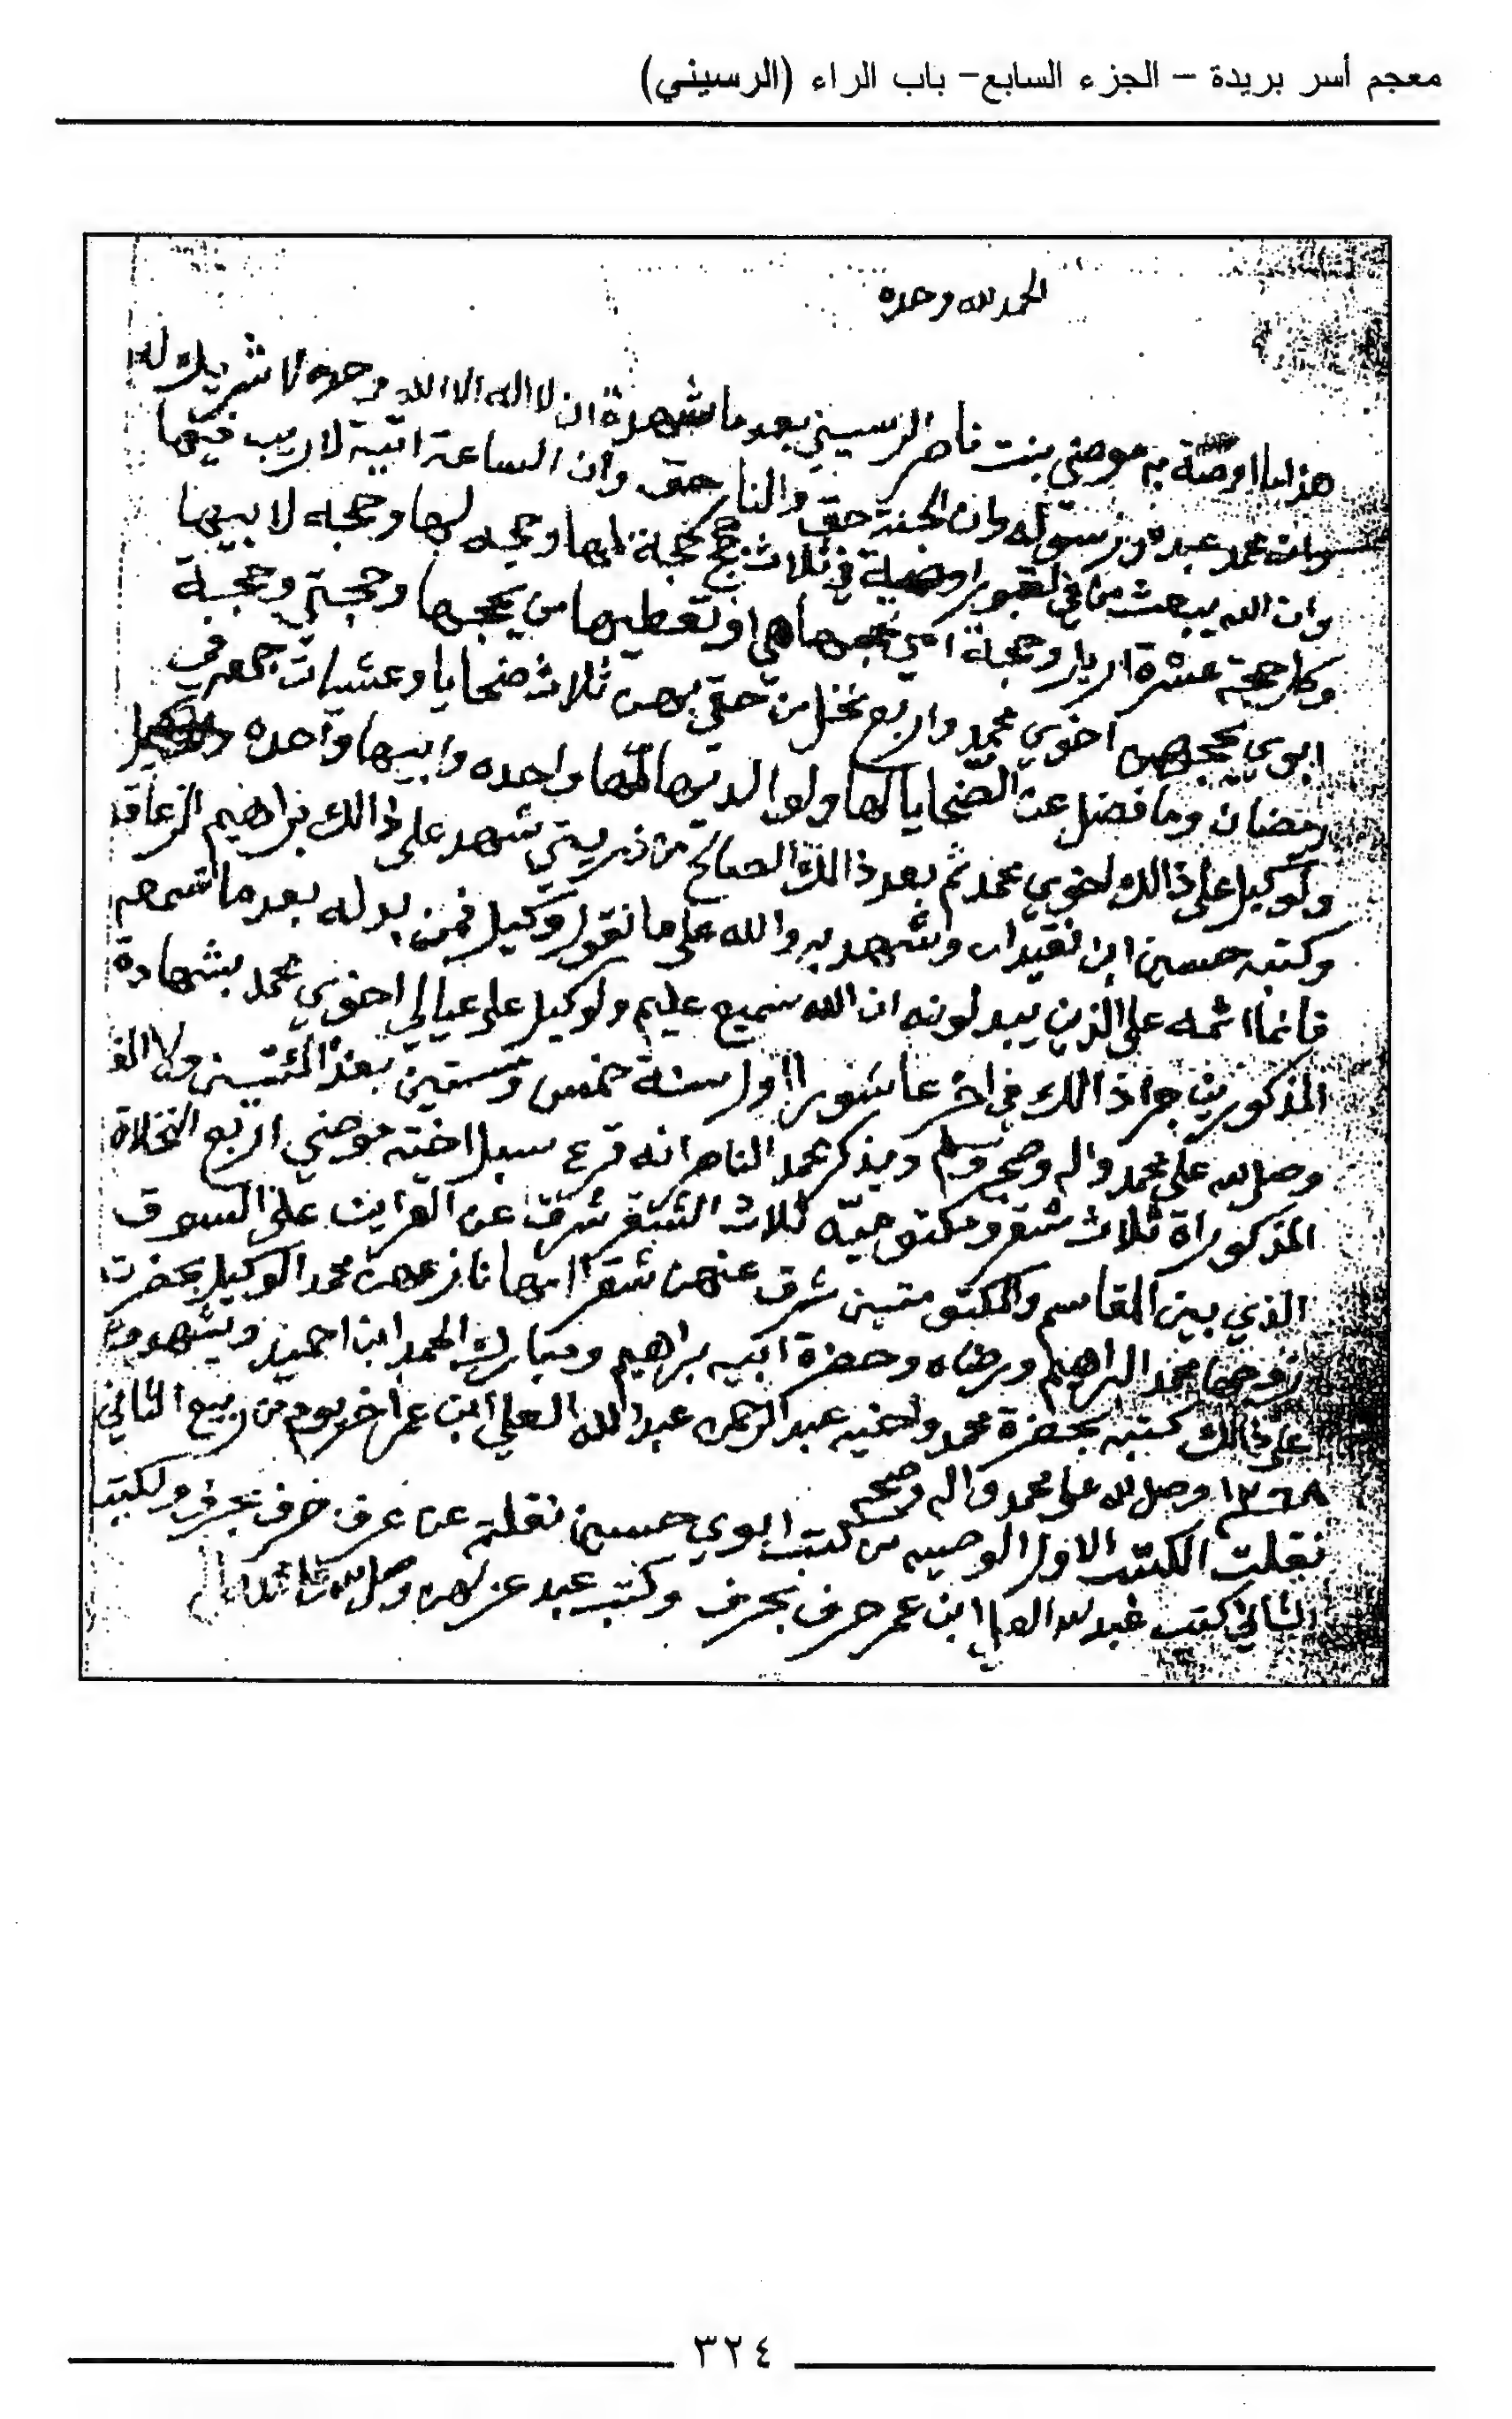 معجم أسر بريدة – الجزء السابع– باب الراء (الرسيني)
الحمد لله وحده
هذا ما اوصة به موضي بنت ناصر الرسيني بعد ما شهدة ان لا اله الا الله وحده لا شريك له
وان محمد عبده ورسوله وان الجنة حق والنار حق وان الساعة اتية لا ريب فيها
وان الله يبعث من في القبور اوصة في ثلاث حجج حجة لها وحجه لها وحجه لابيها
وكل حجة عشرة اريل وحجة امي تحجها هي او تعطيها من يحجها وحجتي وحجة
ابوي يحجهن اخوي محمد واربع نخل من حقي بهن ثلاث ضحايا وعشيات جمع في
رمضان وما فضل عن الضحايا لها ولوالديها لامها واحده وابيها واحده
ولوكيل على ذالك اخوي محمد ثم بعد ذالك الصالح من ذريتي شهد على ذالك براهيم الزعاقا
وكتبه حسين ابن نقيدان وشهد به والله على ما نقول وكيل فمن بدله بعد ما سمعه
فانما اثمه على الذين يبدلونه ان الله سميع عليم ولوكيل على عيالي اخوي محمد بشهادة
المذكورين جرا ذالك في اخر عاشورا اول سنة خمس وستين بعد المئتين ولالف
وصل الله على محمد واله وصحبه وسلم ويذكر محمد الناصر انه قرع سبل اخته موضي اربع النخلاة
المذكوراة ثلاث شقر ومكتوميه ثلاث الشقر شرق عن العرايت على السوق
الذي بين المقاسم والمكتومتين شرق عنهن شقرا امها نازعهن محمد الوكيل بحضرت
زوجها محمد البراهيم ورضاه وحضرة ابنيه براهيم ومبارك الحمد ابن احميد ويشهدون
على ذالك كتبه بحضرة محمد واخيه عبد الرحمن عبد الله العلي ابن عمر اخر يوم من ربيع الثاني
١٢٦٨ وصل الله على محمد واله وصحبه
نقلت الكتب الاول الوصيه من كتب ابوي حسين نقلته عن حرف حرف بحرف ولكتب
الثاني كتب عبد الله العلي ابن عمر حرف بحرف وكتبه عبد عزيز وصل الله على
٣٢٤